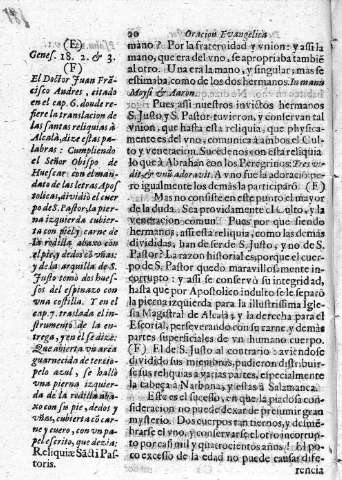 20 Oracion Evangelica
(E)
Genes. 18. 2. & 3.
(F)
El Doctor Juan Frãcisco
Andres, citado
en el cap. 6. donde refiere
la translacion de
las santas reliquias à
Alcalà, dize estas palabras:
Cumpliendo
el Señor Obispo de
Huescar con el mandato
de las letras Apostolicas,
dividiò el cuerpo
de S. Pastor, la pierna
izquierda cubierta
con piel, y carne de
la rodilla abaxo con
el pie, y dedos cõ vñas;
y de la arquilla de S.
Justo tomò dos huessos
del espinazo con
vna costilla. Y en el
cap. 7. traslada el instrumento
de la entrega,
y en èl se dize:
Que abierta vn arca
guarnecida de terciopelo
azul, se hallò
vna pierna izquierda
de la rodilla abaxo
con su pie, dedos y
vñas, cubierta cõ carne
y cuero, con vn papel
escrito, que dezia:
Reliquiæ Sãcti Pastoris.
mano? Por la fraternidad y vnion: y assi la
mano, que era del vno, se apropriaba tambiẽ
al otro. Una era la mano, y singular; mas se
estimaba como de los dos hermanos. In manu
Moysi & Aaron.
Pues assi nuestros invictos hermanos
S. Justo y S. Pastor tuvieron, y conservan tal
vnion, que hasta esta reliquia, que physicamente
es del vno, comunica à ambos el Culto
y veneracion. Sucedenos con esta reliquia
lo que à Abrahan con los Peregrinos: Tres vidit,
& vnũ adoravit. A vno fue la adoraciõ; pero
igualmente los demàs la participarõ. (E)
Mas no consiste en este punto el mayor
de la duda. Sea provechosamente el Culto, y la
veneracion comun: Pues por que siendo
hermanos, assi esta reliquia, como las demàs
divididas, han de ser de S. Justo, y no de S.
Pastor? La razon historial es, porque el cuerpo
de S. Pastor quedò maravillosamente incorrupto:
y assi se conservò su integridad,
hasta que por Apostolico indulto se le separò
la pierna izquierda para la illustrissima Iglesia
Magistral de Alcalà; y la derecha para el
Escorial, perseverando con su carne, y demàs
partes superficiales de vn humano cuerpo.
(F) El de S. Justo al contrario: aviendose
dividido sus miembros, pudieron distribuirse
sus reliquias à varias partes, especialmente
la cabeça à Narbona, y estas à Salamanca.
Este es el sucesso, en que la piadosa consideracion
no puede dexar de presumir gran
mysterio. Dos cuerpos tan tiernos, y desmembrarse
el vno, y conservarse el otro incorrupto
por casi mil y quatrocientos años! El poco
excesso de la edad no puede causar diferencia